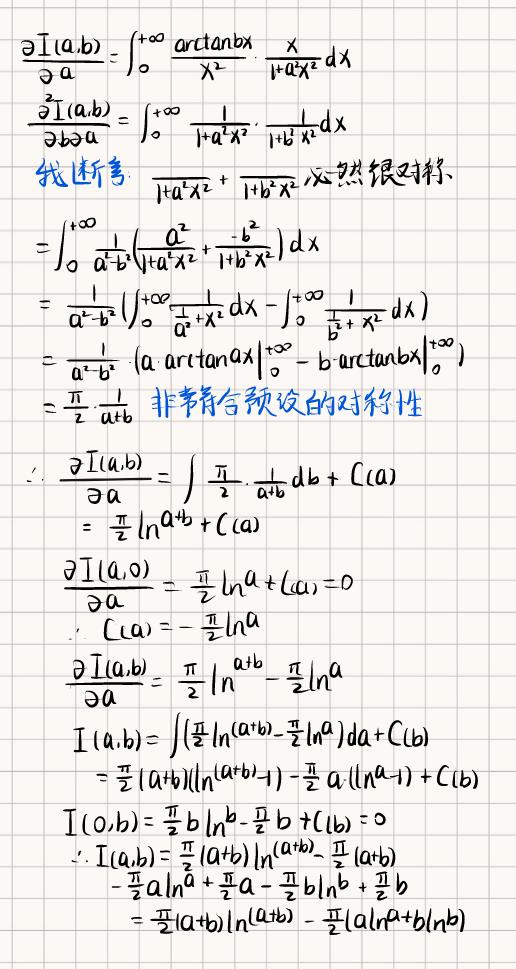 ∂I(a,b)/∂a = ∫₀^{+∞} arctanbx/x² · x/(1+a²x²) dx
∂²I(a,b)/∂b∂a = ∫₀^{+∞} 1/(1+a²x²) · 1/(1+b²x²) dx
我断言 /(1+a²x²) + /(1+b²x²) 必然很对称
= ∫₀^{+∞} 1/(a²-b²) (a²/(1+a²x²) + -b²/(1+b²x²)) dx
= 1/(a²-b²) (∫₀^{+∞} 1/(1/a²+x²) dx - ∫₀^{+∞} 1/(1/b²+x²) dx)
= 1/(a²-b²) · (a·arctanax|₀^{+∞} - b·arctanbx|₀^{+∞})
= π/2 · 1/(a+b) 非常符合预设的对称性
∴ ∂I(a,b)/∂a = ∫ π/2 · 1/(a+b) db + C(a)
= π/2 ln^{a+b} + C(a)
∂I(a,0)/∂a = π/2 ln^a + C(a) = 0
∴ C(a) = -π/2 ln^a
∂I(a,b)/∂a = π/2 ln^{a+b} - π/2 ln^a
I(a,b) = ∫(π/2 ln^{(a+b)} - π/2 ln^a) da + C(b)
= π/2 (a+b)(ln^{(a+b)}-1) - π/2 a·(ln^a-1) + C(b)
I(0,b) = π/2 b ln^b - π/2 b + C(b) = 0
∴ I(a,b) = π/2 (a+b) ln^{(a+b)} - π/2 (a+b)
- π/2 a ln^a + π/2 a - π/2 b ln^b + π/2 b
= π/2 (a+b) ln^{(a+b)} - π/2 (a ln^a + b ln^b)